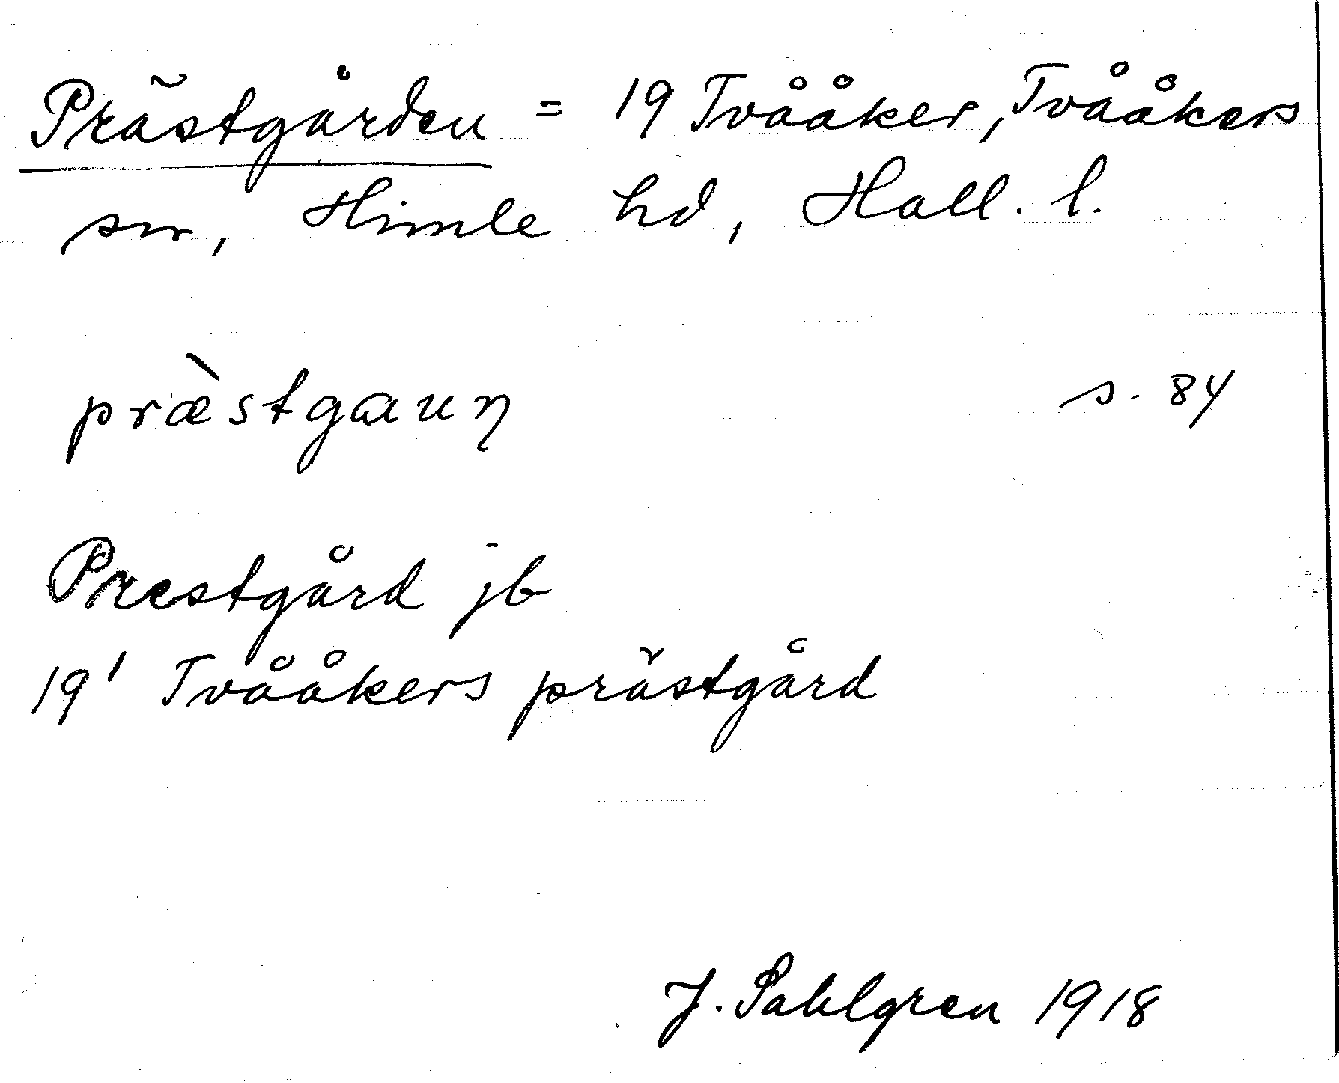 Prästgården = 19 Tvååker, Tvååkers
sn, Himle hd, Hall. l.
præ̀stgaun s. 84
Prestgård jb
19¹ Tvååkers prästgård
J. Sahlgren 1918